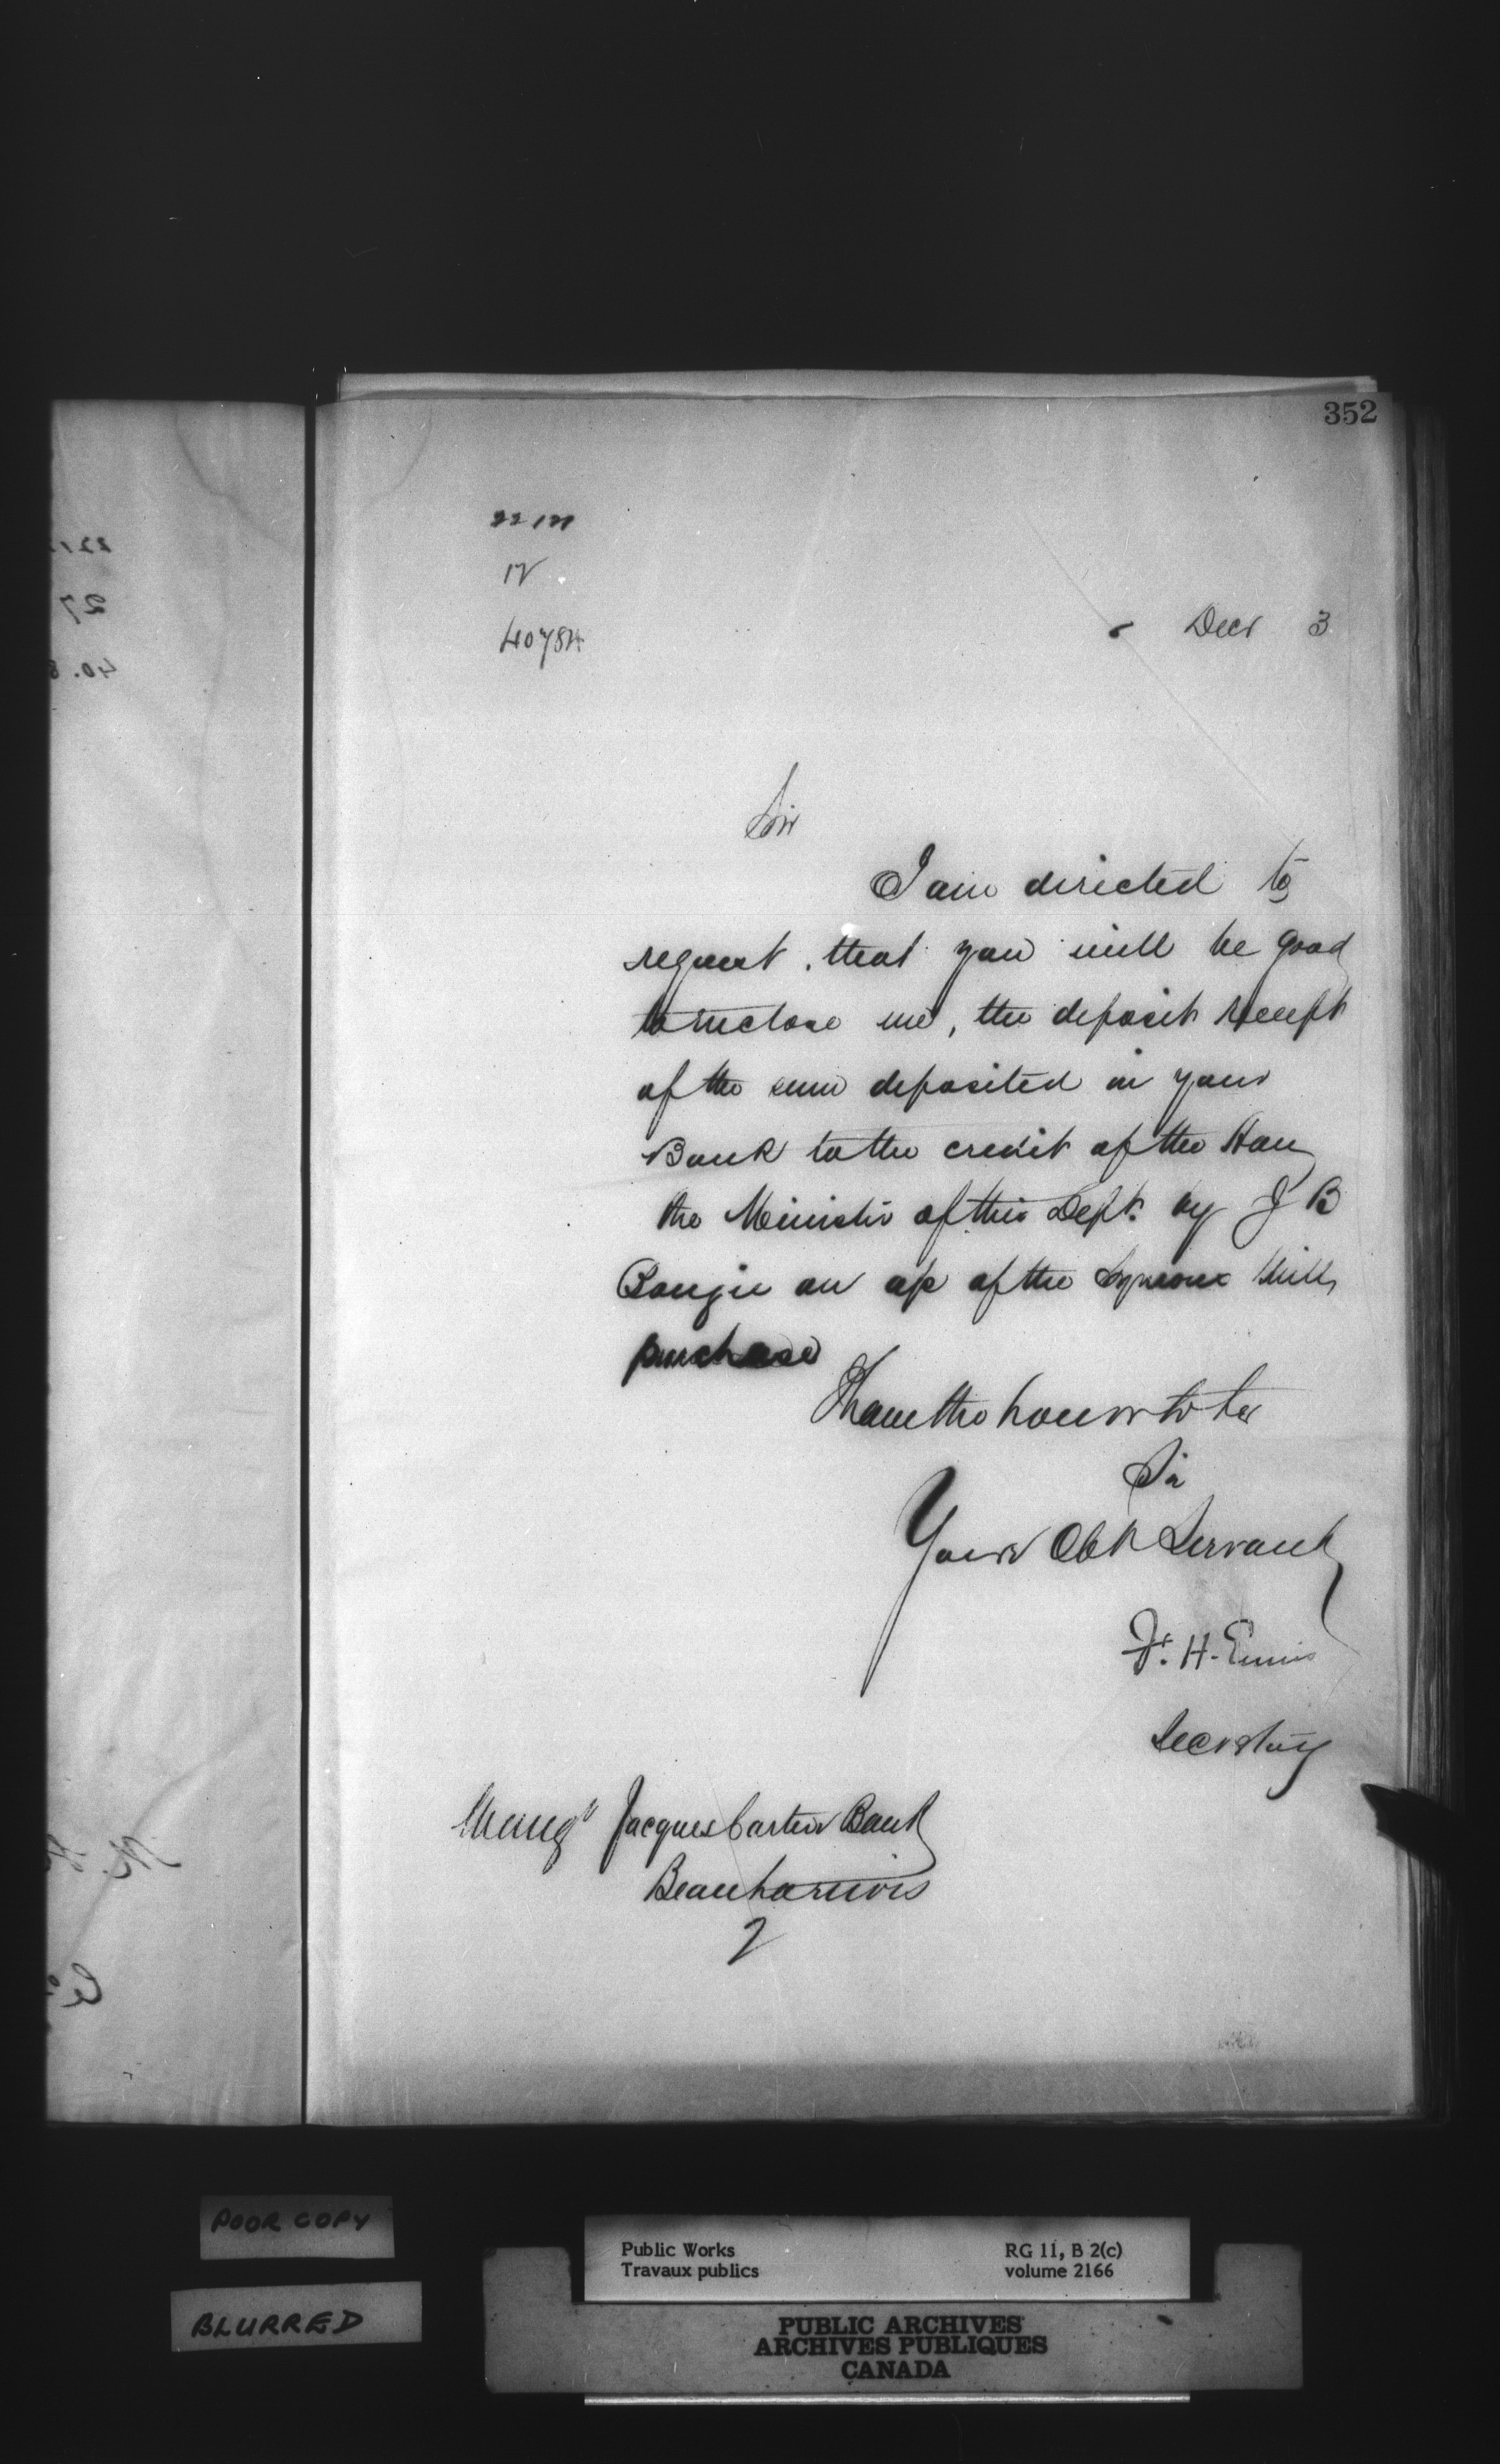 352
22121
40784
Decr 3
Sir
I am directed to
request, that you will be good
to inclose me, the deposit receipt
of the sum deposited in your
Bank to the credit of the Hon
the Minister of this Dept. by J B
on a/c of the Mills
purchase
I have the honor to be
Sir
Your Obt Servant
F. H. Ennis
Secretary
Mangr Jacques Cartier Bank
Beauharnois
2
POOR COPY
BLURRED
Public Works
Travaux publics
RG 11, B 2(c)
volume 2166
PUBLIC ARCHIVES
ARCHIVES PUBLIQUES
CANADA